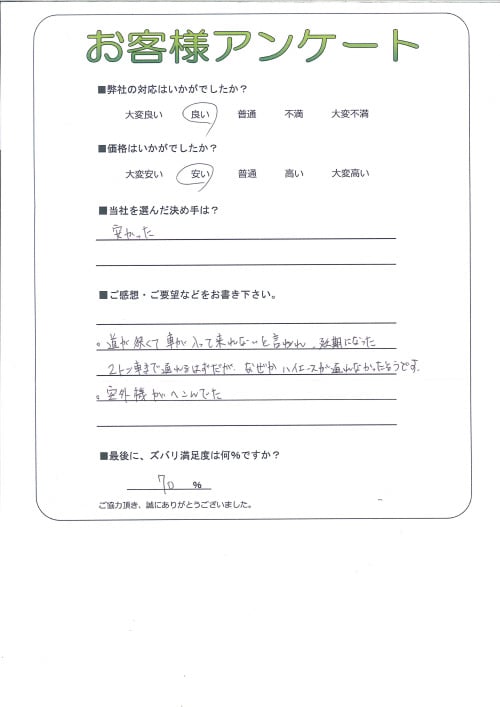 お客様アンケート
■弊社の対応はいかがでしたか?
大変良い 良い 普通 不満 大変不満
■価格はいかがでしたか?
大変安い 安い 普通 高い 大変高い
■当社を選んだ決め手は?
安かった
■ご感想・ご要望などをお書き下さい。
。道が狭くて車が入って来れないと言われ、延期になった
2トン車まで通れるはずだが、なぜかハイエースが通れなかったそうです。
。室外機がヘこんでた
■最後に、ズバリ満足度は何%ですか?
70 %
ご協力頂き、誠にありがとうございました。